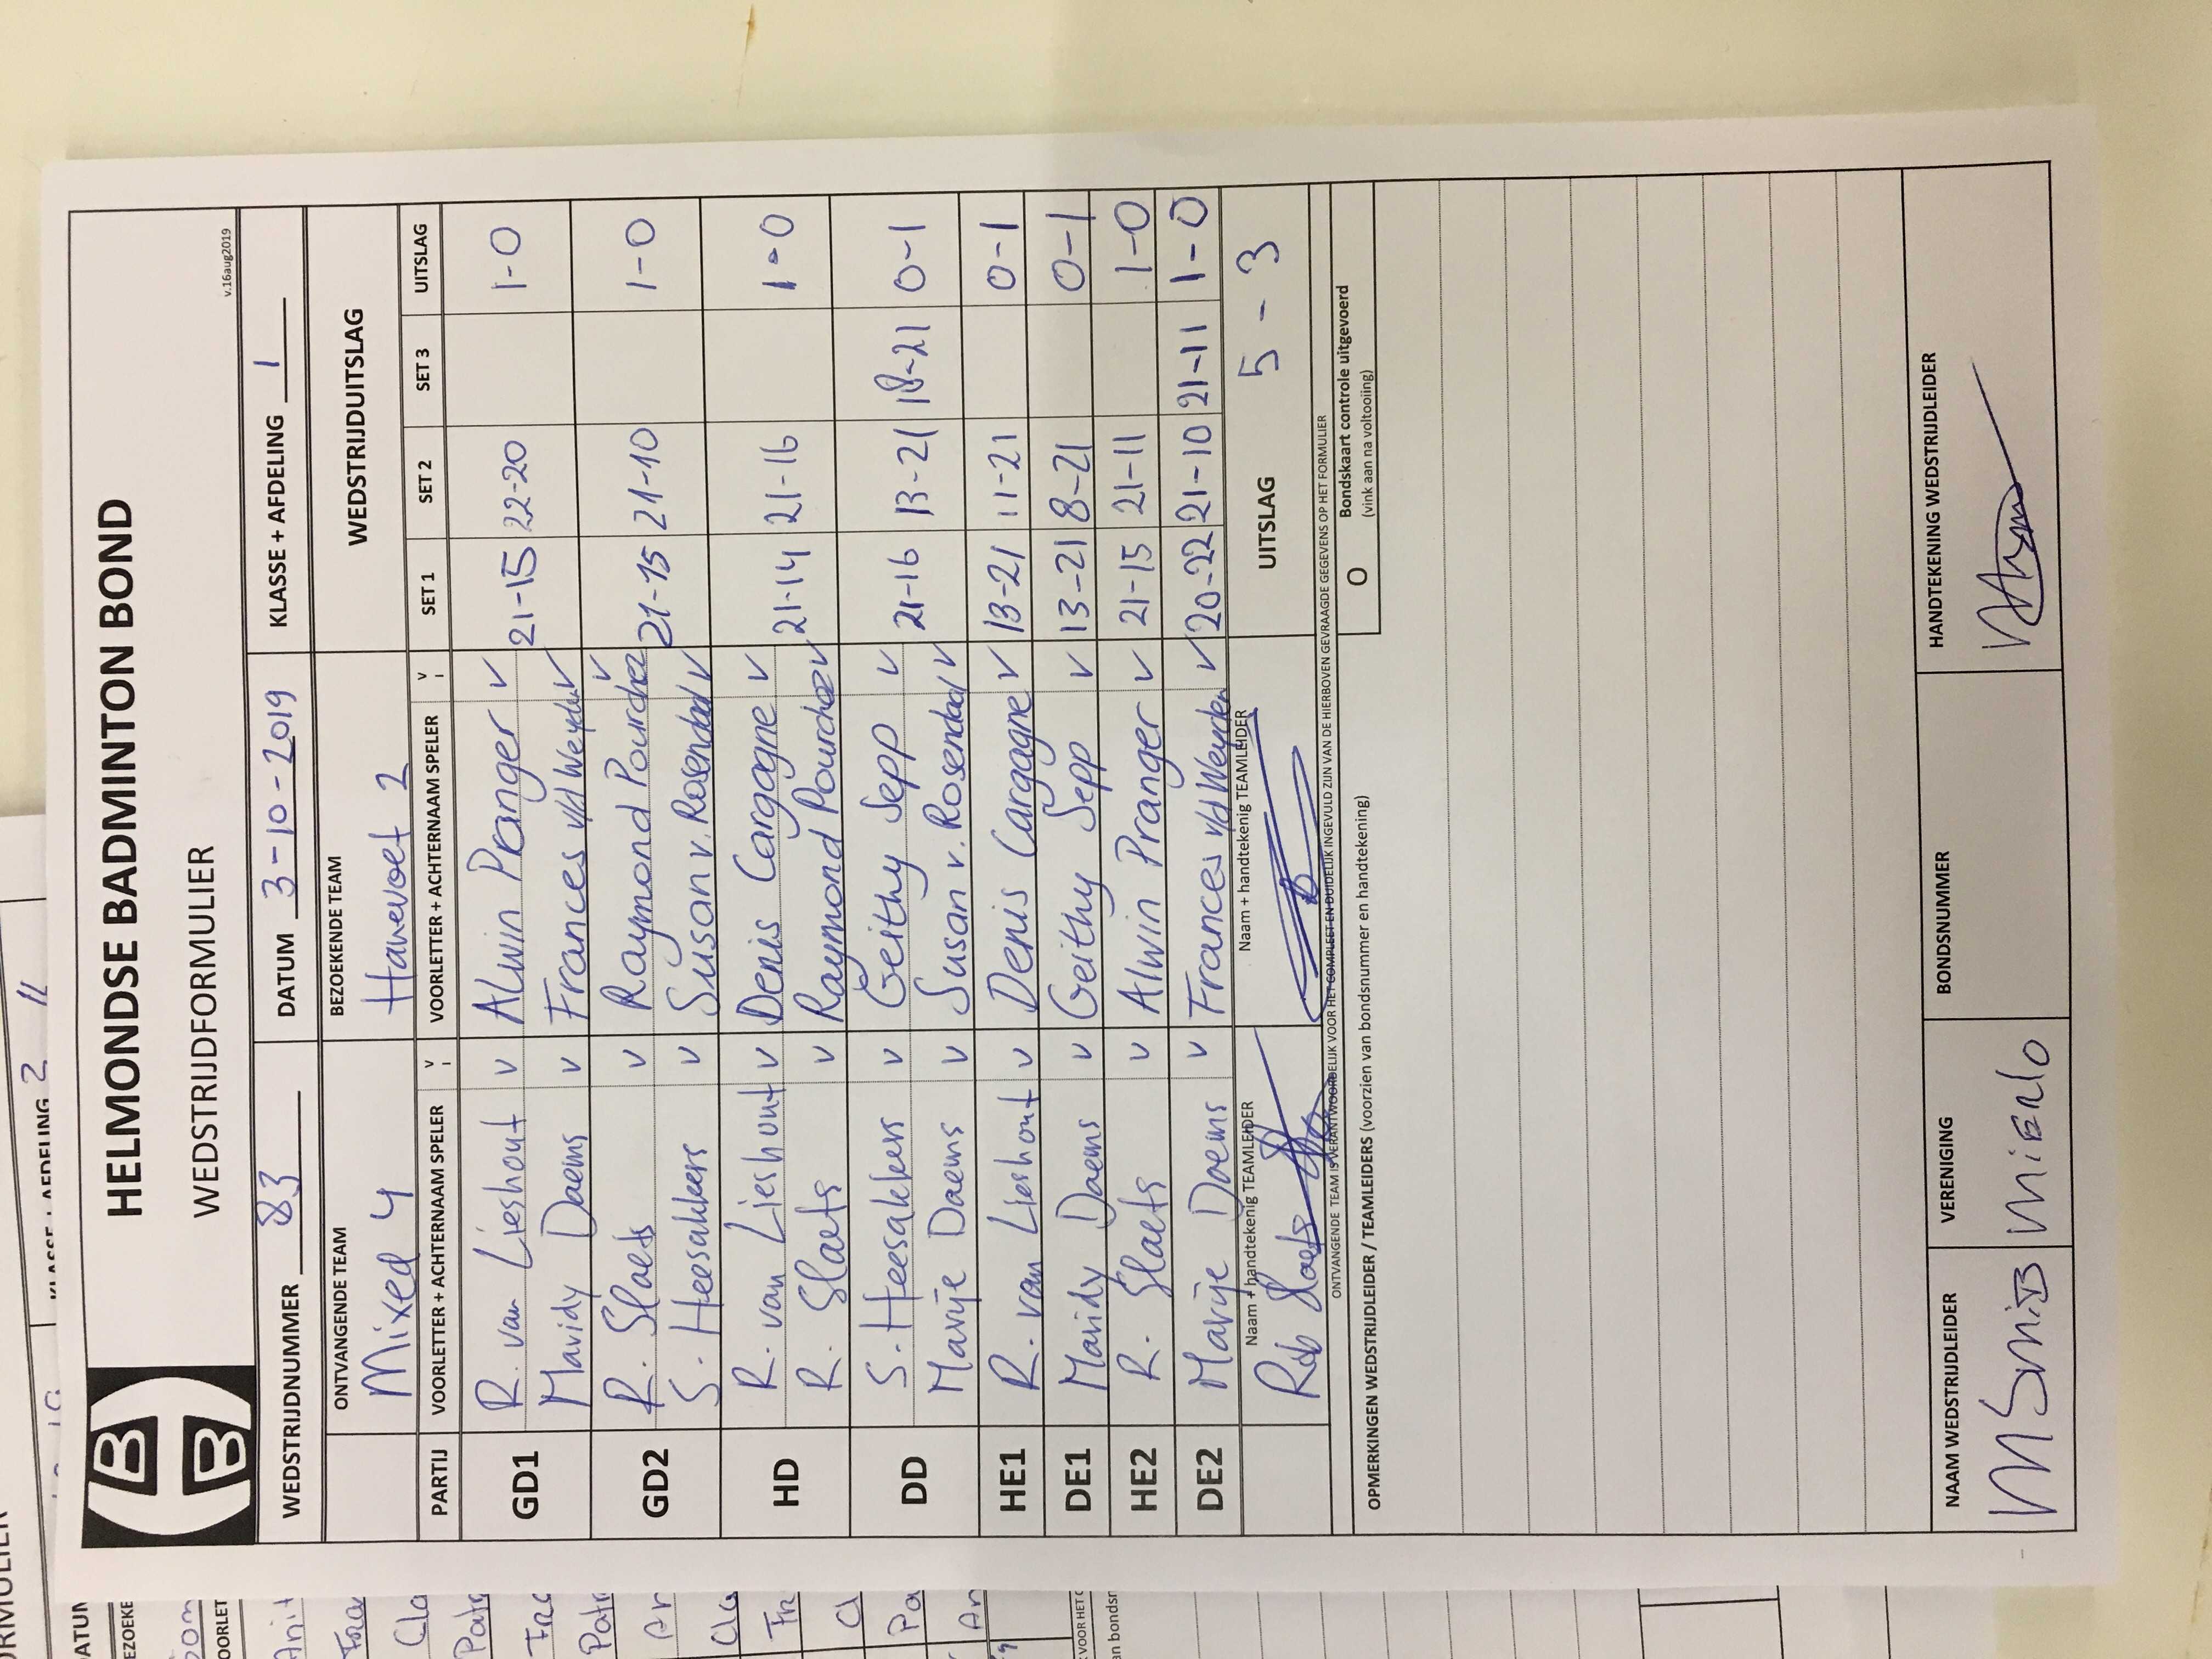 HELMONDSE BADMINTON BOND
WEDSTRIJDFORMULIER
v.16aug2019
WEDSTRIJDNUMMER 83 DATUM 3-10-2019 KLASSE + AFDELING 1
ONTVANGENDE TEAM BEZOEKENDE TEAM WEDSTRIJDUITSLAG
Mixed 4 Hanevoet 2
PARTIJ VOORLETTER + ACHTERNAAM SPELER V VOORLETTER + ACHTERNAAM SPELER V SET 1 SET 2 SET 3 UITSLAG
GD1 R. van Lieshout v Alwin Pranger v 21-15 22-20 1-0
Maridy Daems v Frances v/d Weyden v
GD2 R. Slaets v Raymond Pourchez v 21-15 21-10 1-0
S. Heesakkers v Susan v. Rosendaal v
HD R. van Lieshout v Denis Cargagne v 21-14 21-16 1-0
R. Slaets v Raymond Pourchez v
DD S. Heesakkers v Geithy Sepp v 21-16 13-21 18-21 0-1
Marije Daems v Susan v. Rosendaal v
HE1 R. van Lieshout v Denis Cargagne v 13-21 11-21 0-1
DE1 Maridy Daems v Geithy Sepp v 13-21 8-21 0-1
HE2 R. Slaets v Alwin Pranger v 21-15 21-11 1-0
DE2 Marije Daems v Frances v/d Weyden v 20-22 21-10 21-11 1-0
Naam + handtekenig TEAMLEIDER Naam + handtekenig TEAMLEIDER UITSLAG 5-3
Rob Slaets
ONTVANGENDE TEAM IS VERANTWOORDELIJK VOOR HET COMPLEET EN DUIDELIJK INGEVULD ZIJN VAN DE HIERBOVEN GEVRAAGDE GEGEVENS OP HET FORMULIER
O Bondskaart controle uitgevoerd
(vink aan na voltooiing)
OPMERKINGEN WEDSTRIJDLEIDER / TEAMLEIDERS (voorzien van bondsnummer en handtekening)
NAAM WEDSTRIJDLEIDER VERENIGING BONDSNUMMER HANDTEKENING WEDSTRIJDLEIDER
M Smits MiERLO